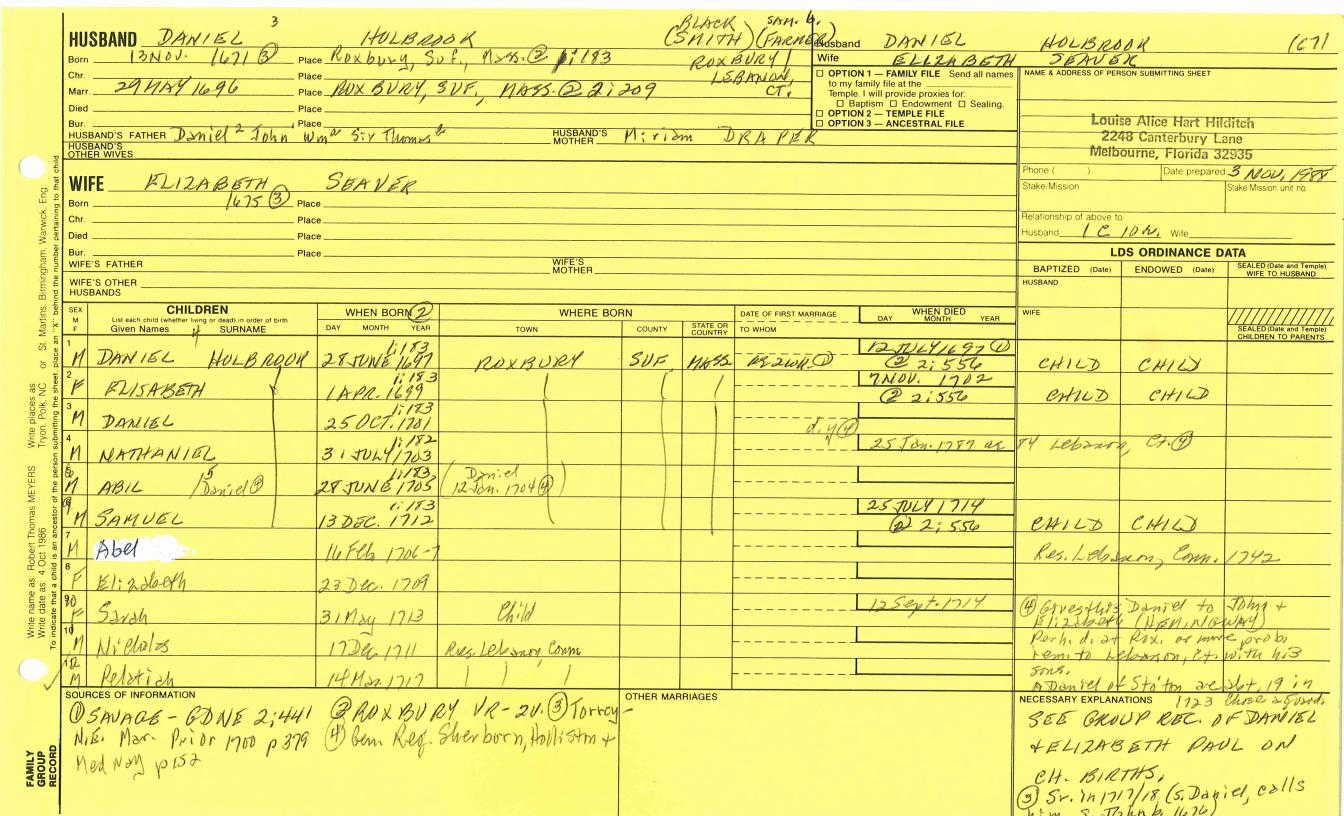 3
HUSBAND DANIEL HOLBROOK
BLACK SAM. 6.
(SMITH) (FARMER)
ROXBURY /
LEBANON,
CT.
Born 13 NOV. 1671 ③ Place Roxbury, Suf., Mass. ② 1:183
Chr. Place
Marr. 29 MAY 1696 Place ROXBURY, SUF., MASS. ② 2:209
Died Place
Bur. Place
HUSBAND'S FATHER Daniel² John¹ Wmᵃ Sir Thomas HUSBAND'S MOTHER Miriam DRAPER
HUSBAND'S OTHER WIVES
WIFE ELIZABETH SEAVER
Born 1675 ③ Place
Chr. Place
Died Place
Bur. Place
WIFE'S FATHER WIFE'S MOTHER
WIFE'S OTHER HUSBANDS
Husband DANIEL HOLBROOK 1671
Wife ELIZABETH SEAVER
☐ OPTION 1 — FAMILY FILE Send all names
to my family file at the
Temple. I will provide proxies for:
☐ Baptism ☐ Endowment ☐ Sealing.
☐ OPTION 2 — TEMPLE FILE
☐ OPTION 3 — ANCESTRAL FILE
NAME & ADDRESS OF PERSON SUBMITTING SHEET
Louise Alice Hart Hilditch
2248 Canterbury Lane
Melbourne, Florida 32935
Phone ( ) Date prepared 3 NOV, 1988
Stake/Mission Stake Mission unit no.
Relationship of above to
Husband 1 C 10 N. Wife
LDS ORDINANCE DATA
BAPTIZED (Date) ENDOWED (Date) SEALED (Date and Temple) WIFE TO HUSBAND
HUSBAND
WIFE
SEALED (Date and Temple) CHILDREN TO PARENTS
SEX M F
CHILDREN
List each child (whether living or dead) in order of birth
Given Names SURNAME
WHEN BORN ②
DAY MONTH YEAR
WHERE BORN
TOWN COUNTY STATE OR COUNTRY
DATE OF FIRST MARRIAGE
TO WHOM
WHEN DIED
DAY MONTH YEAR
1 M DANIEL HOLBROOK 1:183 28 JUNE 1697 ROXBURY SUF. MASS ① 12 JULY 1697 ① ② 2:556 CHILD CHILD
2 F ELISABETH 1:183 1 APR. 1699 7 NOV. 1702 ② 2:556 CHILD CHILD
3 M DANIEL 1:183 25 OCT. 1701 d.y. ④
4 M NATHANIEL 1:182 31 JULY 1703 25 Jan. 1787 ae 84 Lebanon, Ct. ④
M ABIL /5 Daniel ④ 1:183 28 JUNE 1705 (Daniel 12 Jan. 1704 ④)
M SAMUEL 1:183 13 DEC. 1712 25 JULY 1714 ② 2:556 CHILD CHILD
7 M Abel 16 Feb 1706-7 Res. Lebanon, Conn. 1742
8 F Elizabeth 23 Dec. 1709
F Sarah 31 May 1713 Child 12 Sept. 1714
10 M Nicholas 17 Dec 1711 Res. Lebanon, Conn
M Pelatiah 14 Mar. 1717
④ Gives this Daniel to John +
Elizabeth (HEMINGWAY)
Perh. d. at Rox. or more prob.
rem. to Lebanon, Ct. with his
sons.
A Daniel of Sto'ton ae abt. 19 in
1723 chose a guard.
SOURCES OF INFORMATION
① SAVAGE - GDNE 2:441 ② ROXBURY VR - 2V. ③ Torrey -
N.E. Mar. Prior 1700 p 379 ④ Gen. Reg. Sherborn, Holliston +
Medway p152
OTHER MARRIAGES
NECESSARY EXPLANATIONS
SEE GROUP REC. OF DANIEL
+ ELIZABETH PAUL ON
CH. BIRTHS.
③ Sr. in 1717/18 (s. Daniel, calls
him s. John b. 1676)
FAMILY GROUP RECORD
Write name as: Robert Thomas MEYERS Write places as: Tryon, Polk, NC or St. Martins, Birmingham, Warwick, Eng.
Write date as: 4 Oct 1986
To indicate that a child is an ancestor of the person submitting the sheet, place an "X" behind the number pertaining to that child